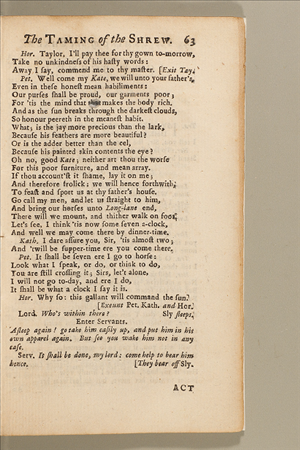 The TAMING of the SHREW. 63
Hor. Taylor, I'll pay thee for thy gown to-morrow,
Take no unkindness of his hasty words:
Away I say, commend me to thy master. [Exit Tay.
Pet. Well come my Kate, we will unto your father's,
Even in these honest mean habiliments:
Our purses shall be proud, our garments poor;
For 'tis the mind that makes the body rich.
And as the sun breaks through the darkest clouds,
So honour peereth in the meanest habit.
What; is the jay more precious than the lark,
Because his feathers are more beautiful?
Or is the adder better than the eel,
Because his painted skin contents the eye?
Oh no, good Kate; neither art thou the worse
For this poor furniture, and mean array.
If thou account'st it shame, lay it on me;
And therefore frolick; we will hence forthwith,
To feast and sport us at thy father's house.
Go call my men, and let us straight to him,
And bring our horses unto Long-lane end,
There will we mount, and thither walk on foot,
Let's see, I think 'tis now some seven a-clock,
And well we may come there by dinner-time.
Kath. I dare assure you, Sir, 'tis almost two;
And 'twill be supper-time ere you come there.
Pet. It shall be seven ere I go to horse:
Look what I speak, or do, or think to do,
You are still crossing it; Sirs, let't alone.
I will not go to-day, and ere I do,
It shall be what a clock I say it is.
Hor. Why so: this gallant will command the sun.
[Exeunt Pet. Kath. and Hor.
Lord. Who's within there? Sly sleeps.
Enter Servants.
Asleep again! go take him easily up, and put him in his
own apparel again. But see you wake him not in any
case.
Serv. It shall be done, my lord: come help to bear him
hence. [They bear off Sly.
ACT